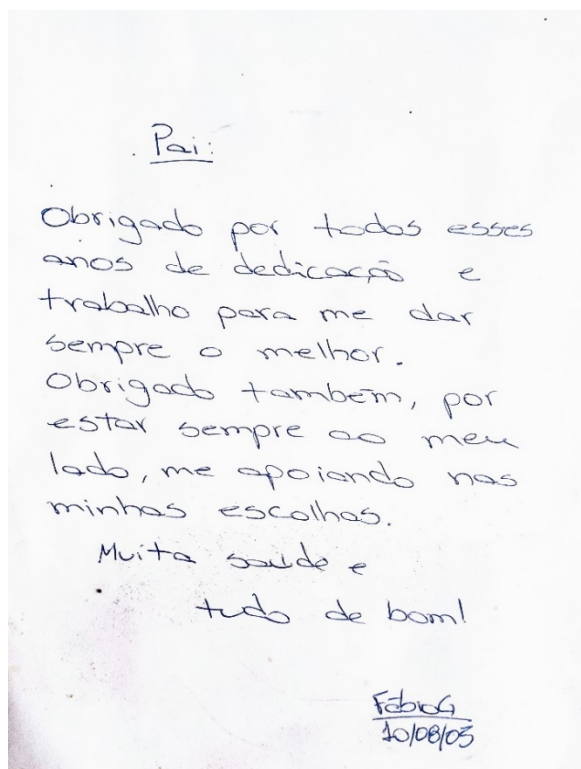 Pai:
Obrigado por todos esses
anos de dedicação e
trabalho para me dar
sempre o melhor.
Obrigado também, por
estar sempre ao meu
lado, me apoiando nas
minhas escolhas.
Muita saúde e
tudo de bom!
FábioG
10/08/03